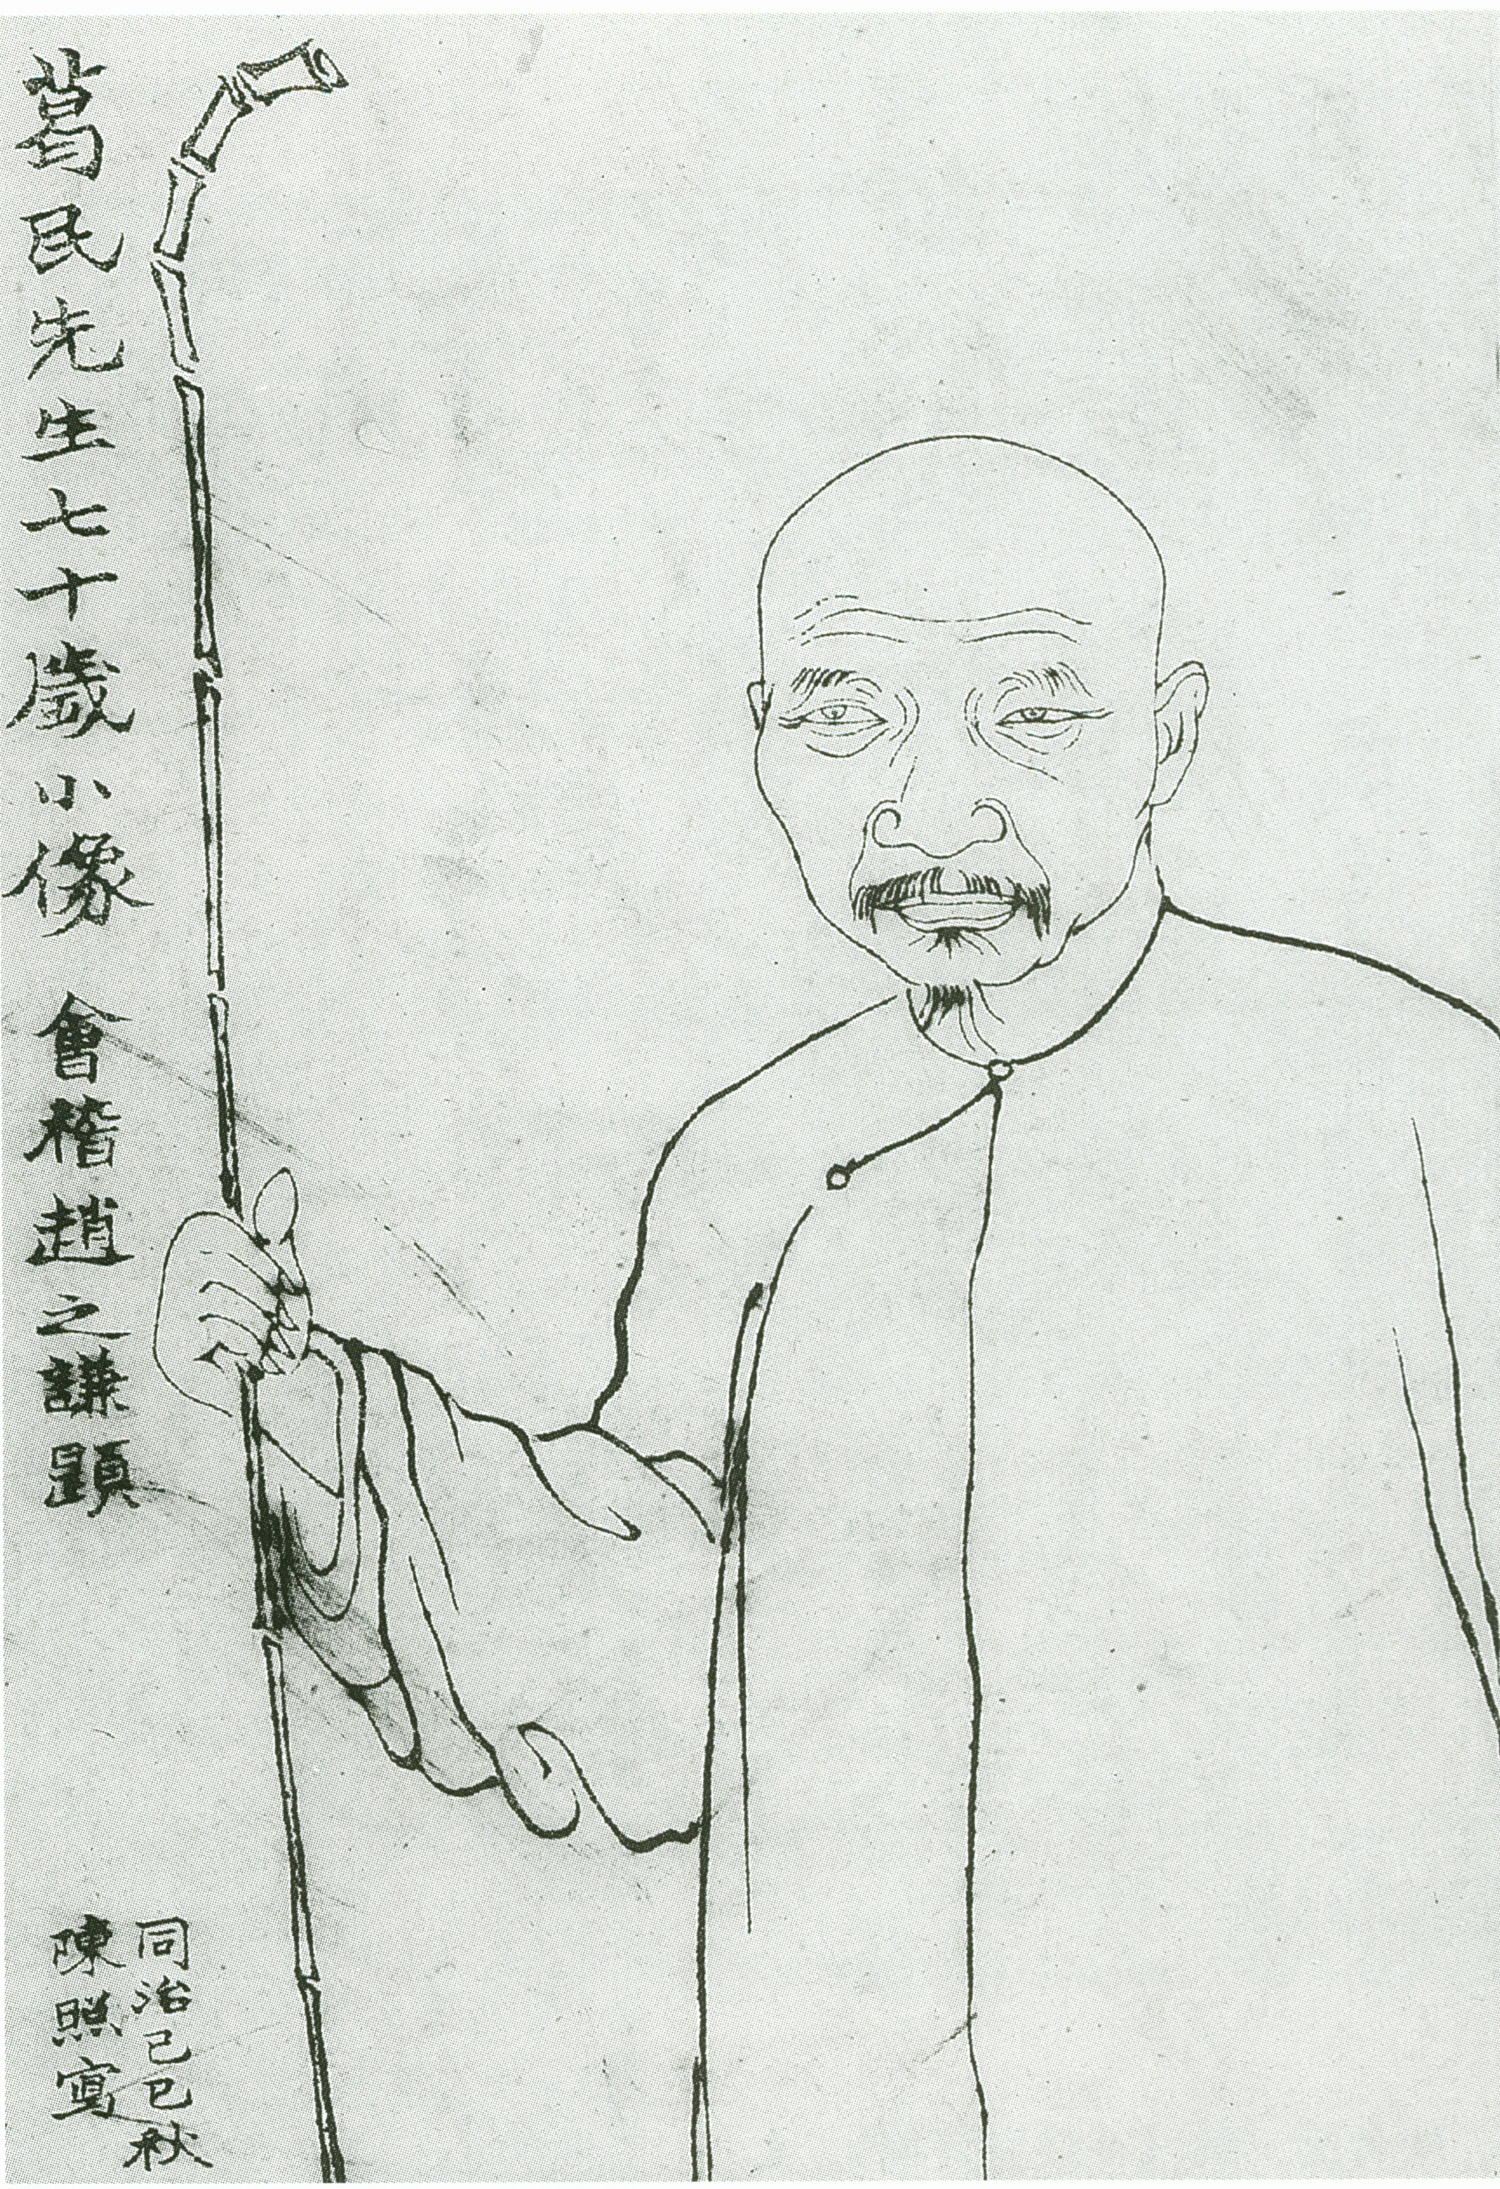 葛民先生七十歲小像 會稽趙之謙題
同治己巳秋
陳照寫